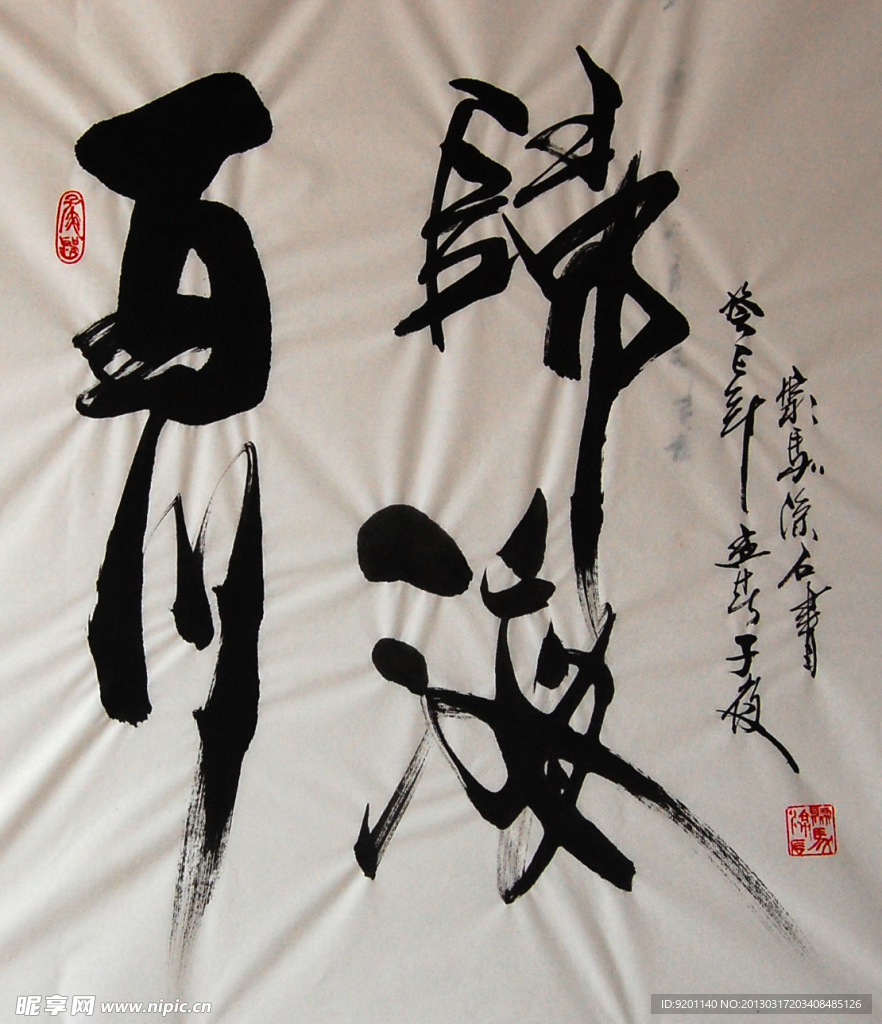 百川
歸海
癸巳年孟春子夜
石書
昵享网 www.nipic.cn
ID:9201140 NO:20130317203408485126